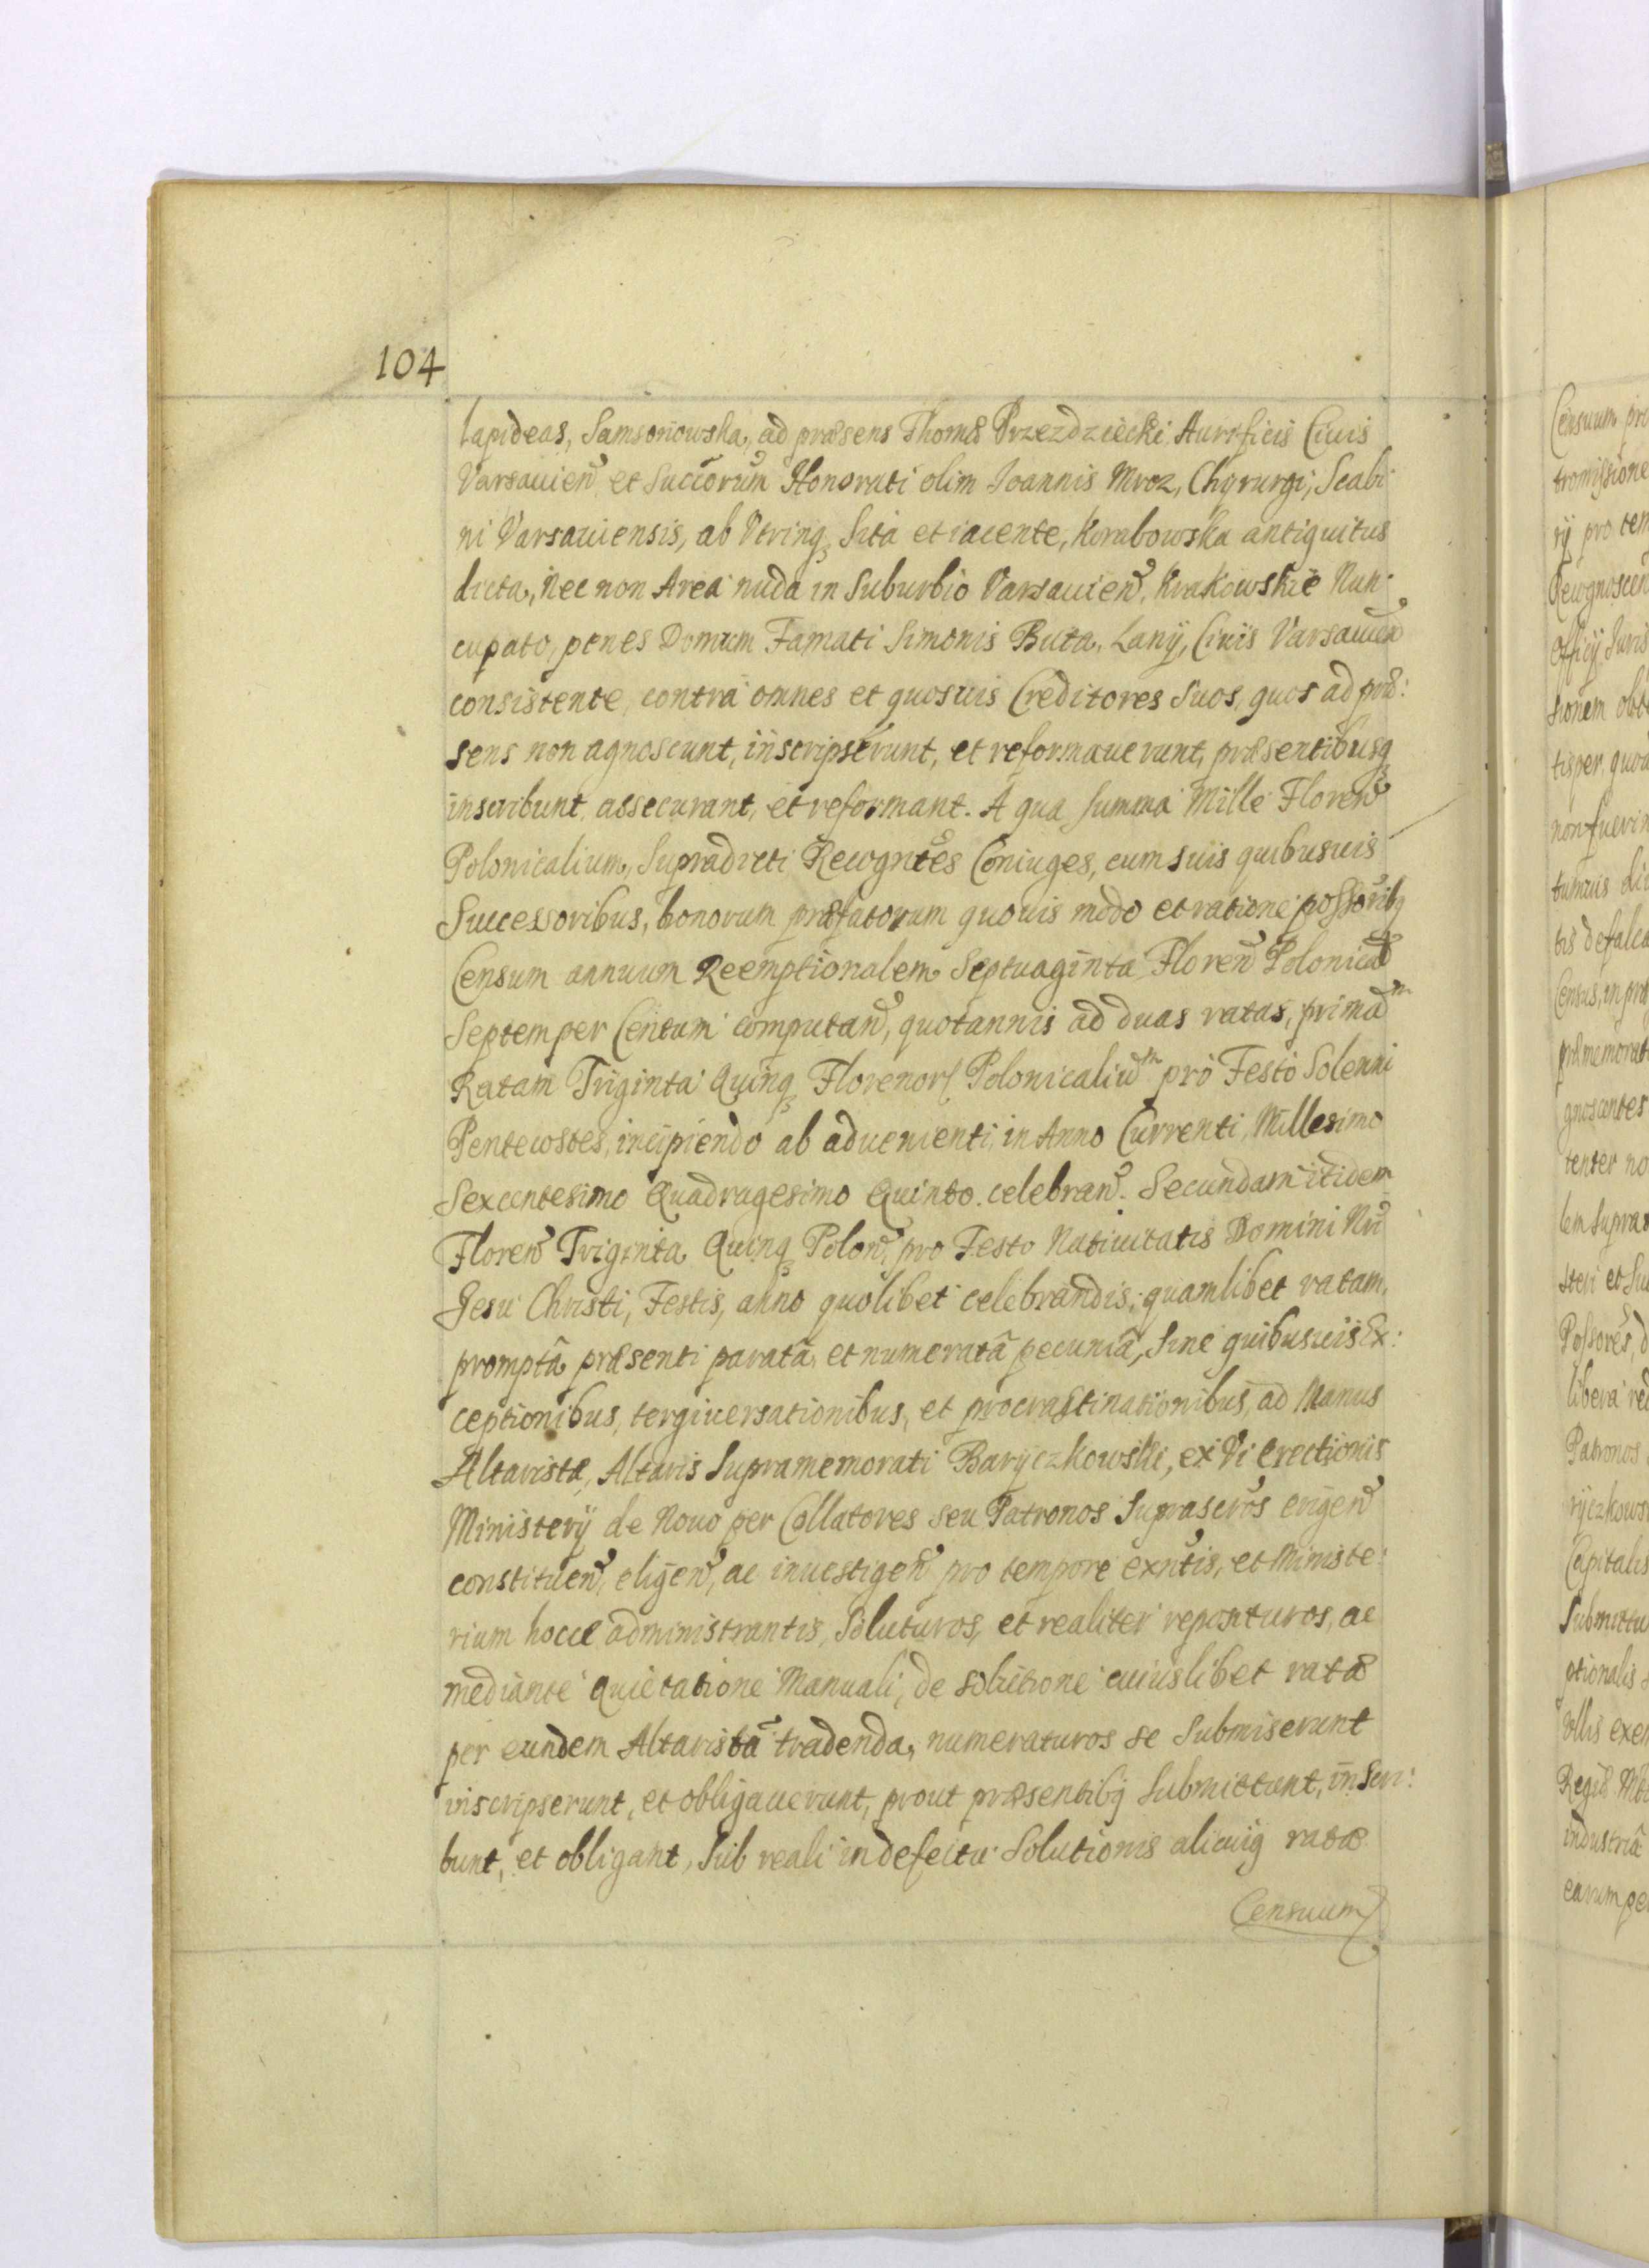 104
Lapideas, Samsonowska, ad præsens Thomæ Przezdziecki, Aurificis Ciuis
Varsauieñ, et Succorum Honorati olim Joannis Mroz, Chyrurgi, Scabi
ni Varsauiensis, ab Vtrinq́ꝫ Sita et iacente, Korabowska antiquitus
dicta, Nec non Area nuda in Suburbio Varsauieñ, Krakowskie Nun-
cupato, penes Domum Famati Simonis Buta, Lanÿ, Ciuis Varsauieñ
consistente, contra omnes et quosuis Creditores Suos, quos ad præ:
sens non agnoscunt, inscripserunt, et reformauerunt, præsentibusqꝫ
inscribunt, assecurant, et reformant. A qua Summa Mille Floreñ
Polonicalium, Supradicti Recogñtes Coniuges, cum suis quibusuis
Successoribus, bonorum præfatorum quouis modo et ratione possoribꝫ
Censum annuum Reemptionalem Septuaginta Floreñ Polonical
Septem per Centum computañ, quotannis ad duas ratas, primã
Ratam Triginta Quinqꝫ Florenor Polonicaliũm pro Festo Solenni
Pentecostes, incipiendo ab aduenienti, in Anno Currenti, Millesimo
Sexcentesimo Quadragesimo Quinto. celebrañ. Secundam itidem
Floreñ Triginta Quinqꝫ Poloñ, pro Festo Natiuitatis Domini Nri
Jesu Christi, Festis, anno quolibet celebrandis, quamlibet ratam,
promptâ præsenti paratâ, et numeratâ pecuniâ, Sine quibusuis Ex:
ceptionibus, tergiuersationibus, et procrastinationibus, ad Manus
Altaristæ, Altaris Supramemorati Baryczkowski, ex Vi Erectionis
Ministerÿ de Nouo per Collatores seu Patronos Suprascros erigeñ
constitueñ, eligeñ, ac inuestigeñ pro tempore exñtis, et Ministe:
rium hocce administrantis, Soluturos, et realiter reposituros, ac
mediante Quietatione Manuali, de solutione cuiuslibet ratæ
per eundem Altaristã tradenda, numeraturos se Submiserunt
inscripserunt, et obligauerunt, prout præsentibꝫ Submittunt, inscri:
bunt, et obligant, Sub reali in defectu Solutionis alicuiꝫ ratæ
Censuum